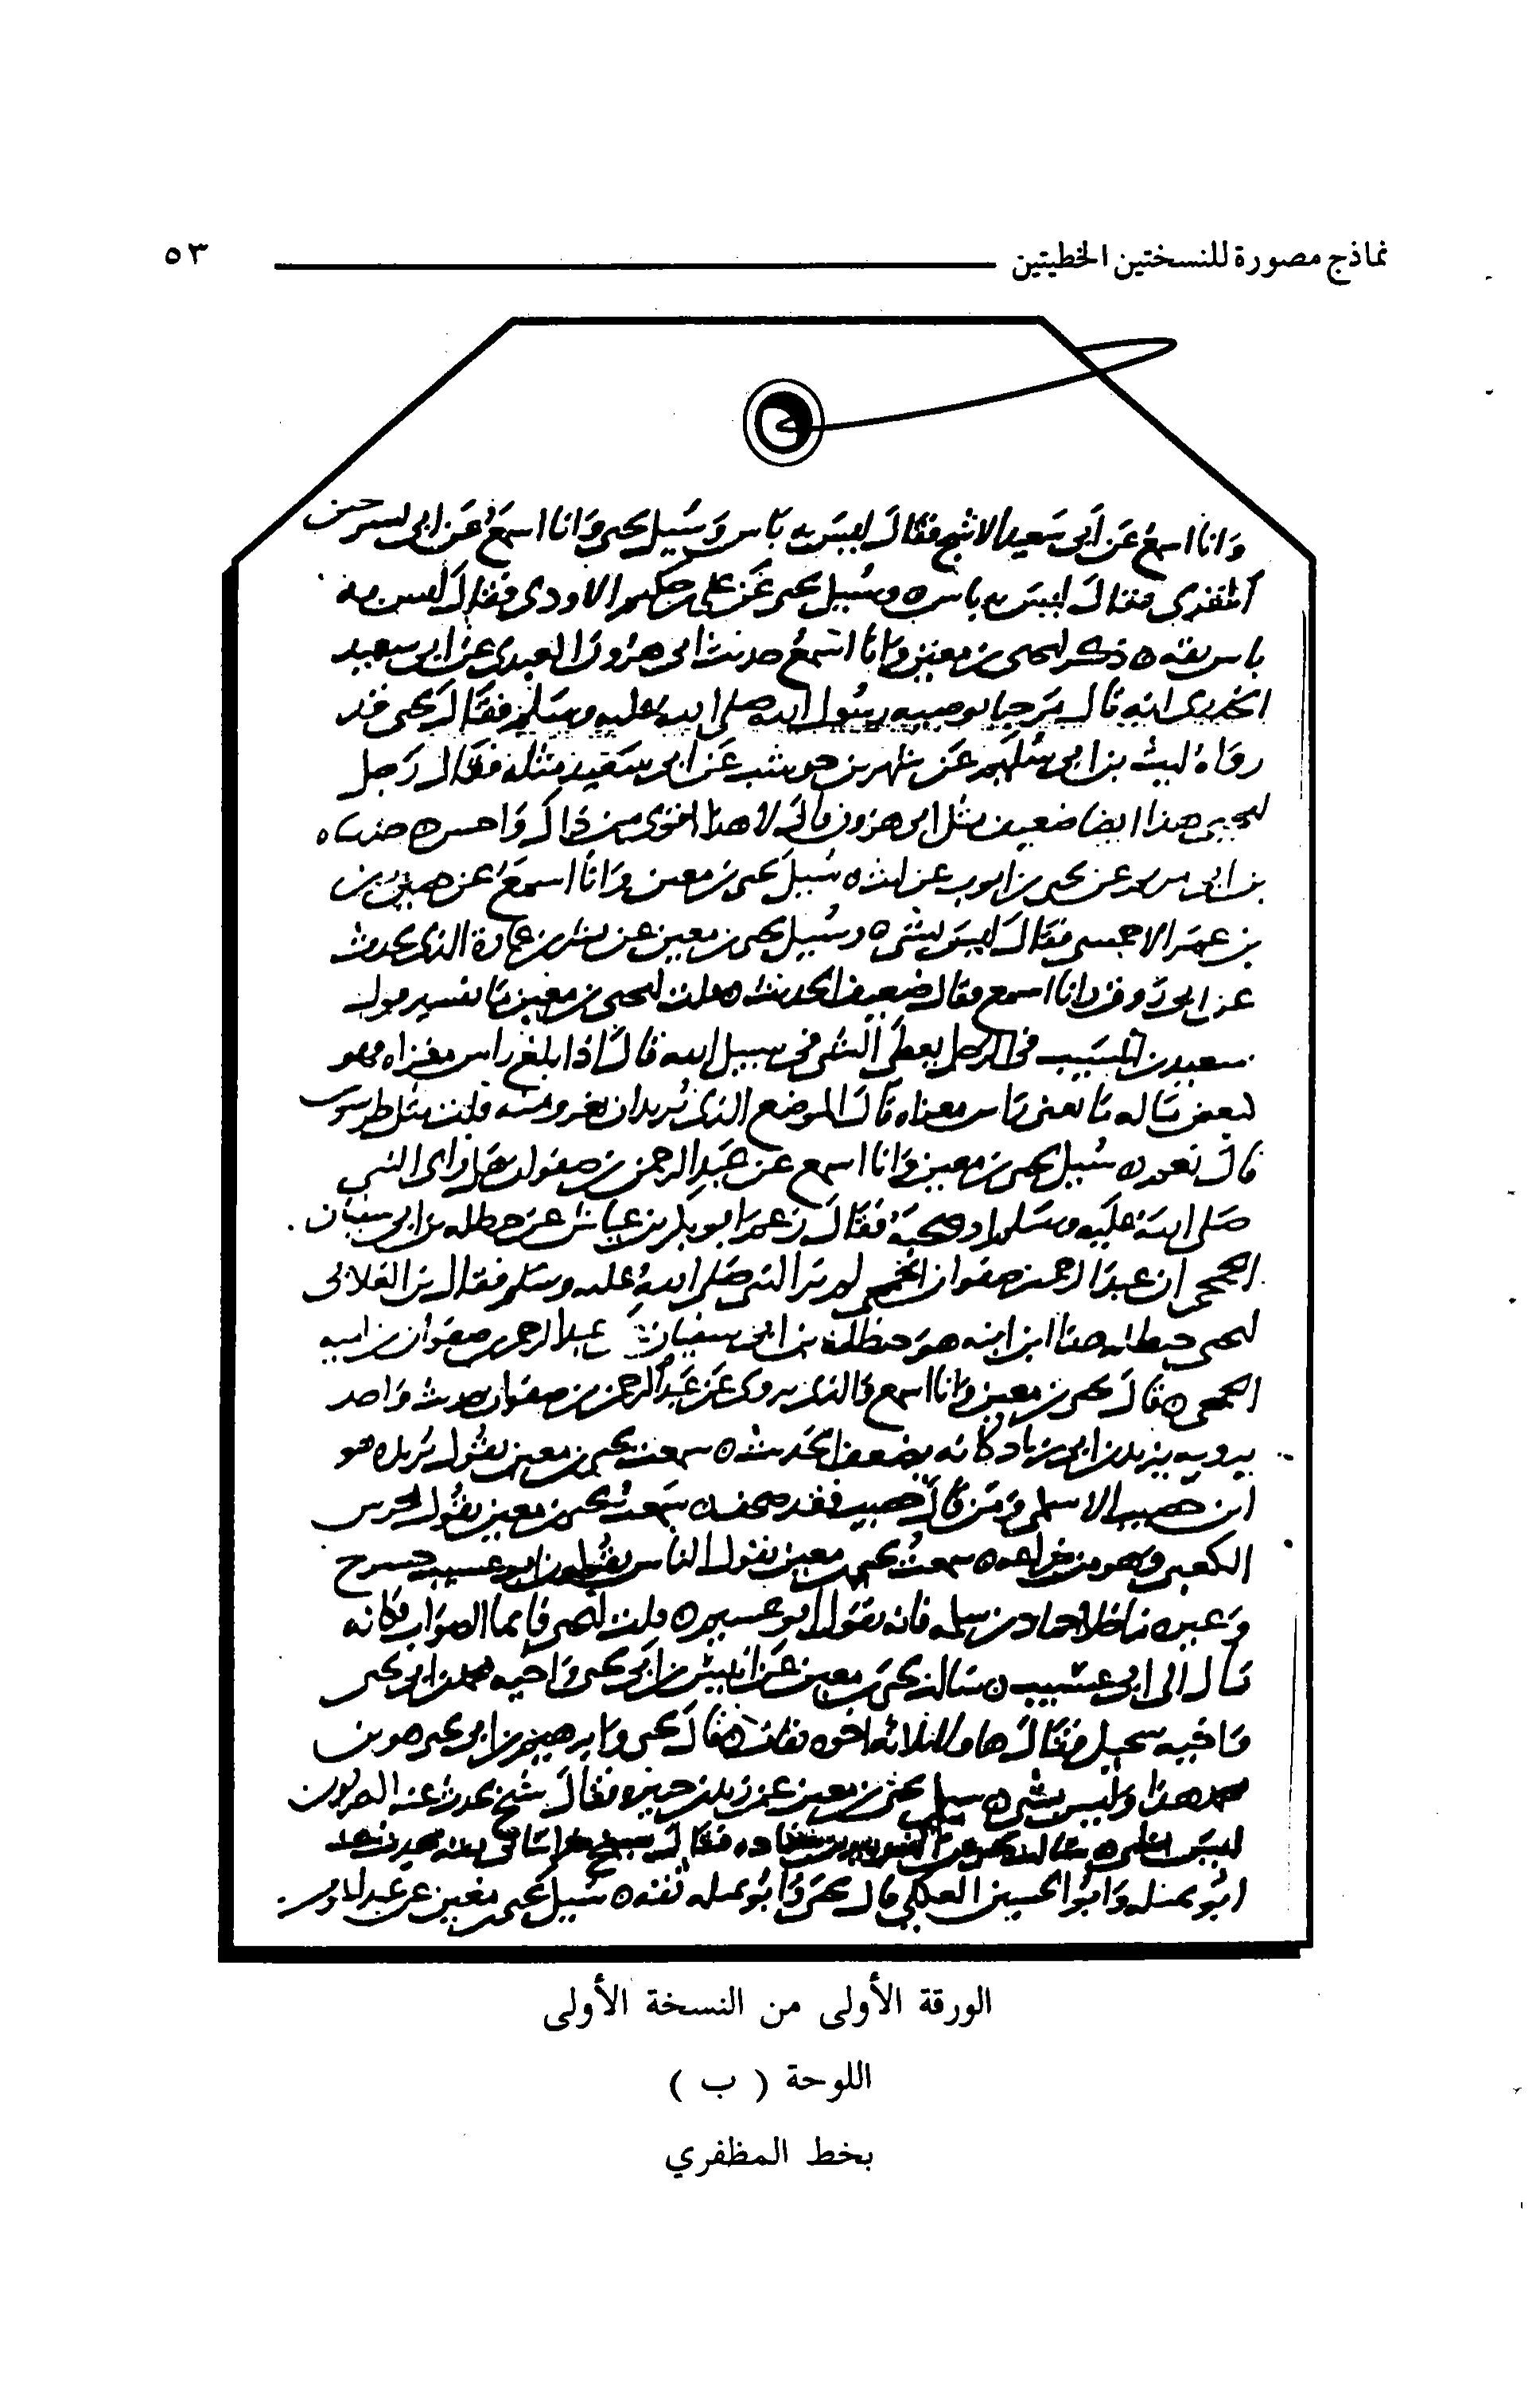 نماذج مصورة للنسختين الخطيتين ٥٣
وانا اسمع عن ابي سعيد الاشج فقال ليس به باس وسيل يحيى وانا اسمع عن ابي
المقري فقال ليس به باس وسيل يحيى عن علي بن حكيم الاودي فقال ليس به
باس ثقه ذكر ليحيى بن معين وانا اسمع حديث ابي هرون العبدي عن ابي سعيد
الخدري انه قال مرحبا بوصيه رسول الله صلى الله عليه وسلم فقال يحيى قد
رواه ليث بن ابي سليم عن شهر بن حوشب عن ابي سعيد مثله فقال رجل
ليحيى هذا ايضا ضعيف مثل ابي هرون قال لا هذا اقوى من ذاك واحسن حدثناه
بن ابي مريم عن يحيى بن ايوب عن ليث سيل يحيى بن معين وانا اسمع عن حصين
بن عمر الاحمسي فقال ليس بشي وسيل يحيى بن معين عن بشر بن عمارة الذي يحدث
عن ابي روق وانا اسمع فقال ضعيف الحديث قلت ليحيى بن معين ما تفسير قول
سعيد بن المسيب في الرجل يعطى الشي في سبيل الله قال اذا بلغ راس مغزاه فهو
كبعض ماله ما يعني راس مغزاه قال الموضع الذي يريد ان يغزو منه قلت مثل طرسوس
قال نعم سيل يحيى بن معين وانا اسمع عن عبد الرحمن بن صفوان هل راى النبي
صلى الله عليه وسلم او صحبه فقال زعم ابو بكر بن عياش عن حنظله بن ابي سفيان
الجمحي ان عبد الرحمن بن صفوان الجمحي لم ير النبي صلى الله عليه وسلم فقال بن الغلابي
ليحيى حنظله هذا ابن ابنه هو حنظله بن ابي سفيان بن عبد الرحمن بن صفوان بن اميه
الجمحي فقال يحيى بن معين وانا اسمع والذي يروى عن عبد الرحمن بن صفوان حديث واحد
يرويه يزيد بن ابي زياد كانه يضعف الحديث سمعت يحيى بن معين يقول بريده هو
ابن حصيب الاسلمي ومن قال خصيب فقد صحف سمعت يحيى بن معين يقول
الكعبي وهو من خزاعه سمعت يحيى بن معين يقول الناس يقولون ابو عسيب حشرج
وغيره ما خلا حماد بن سلمه فانه يقول ابو عسيم قلت ليحيى فايما الصواب فكانه
مال الى ابي عسيب سالت يحيى بن معين عن انيس بن ابي يحيى واخيه محمد بن ابي يحيى
واخيه سحبل فقال هاولا الثلاثه اخوه ثقات فقال يحيى وابرهيم بن ابي يحيى هو بن
محمد هذا وليس بشي سيل يحيى بن معين عن زيد بن فقال شيخ يحدث عنه
ليس
ابو تميله وابو الحسين العكلي قال يحيى وابو تميله ثقه سيل يحيى بن معين عن
الورقة الأولى من النسخة الأولى
اللوحة ( ب )
بخط المظفري